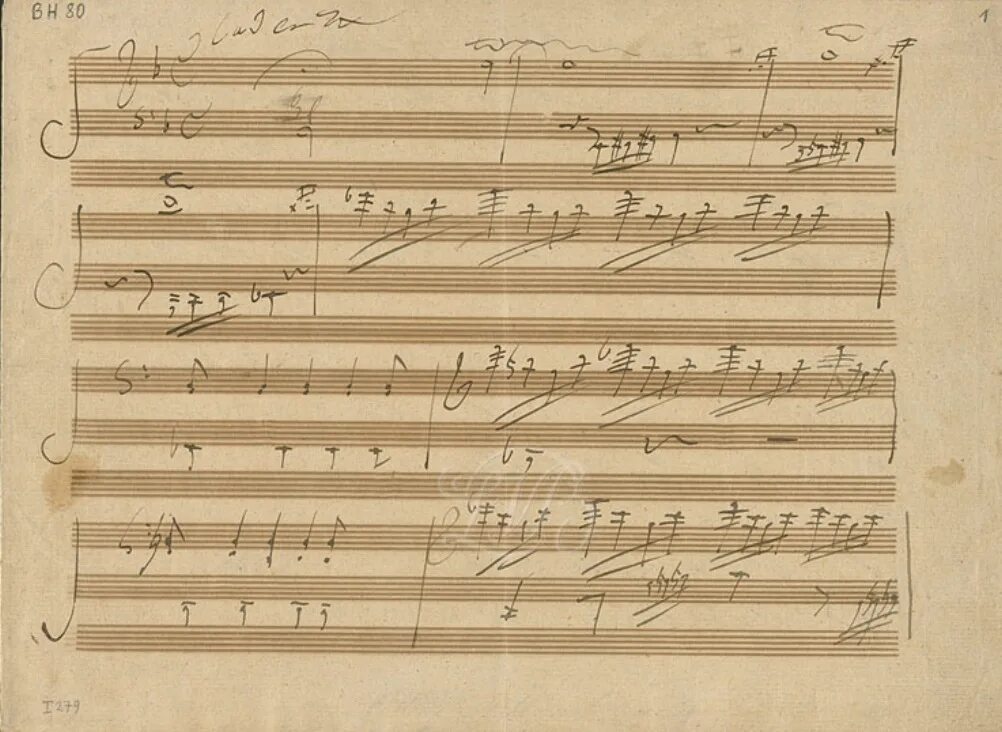 BH 80
Cadenza
1
I 279